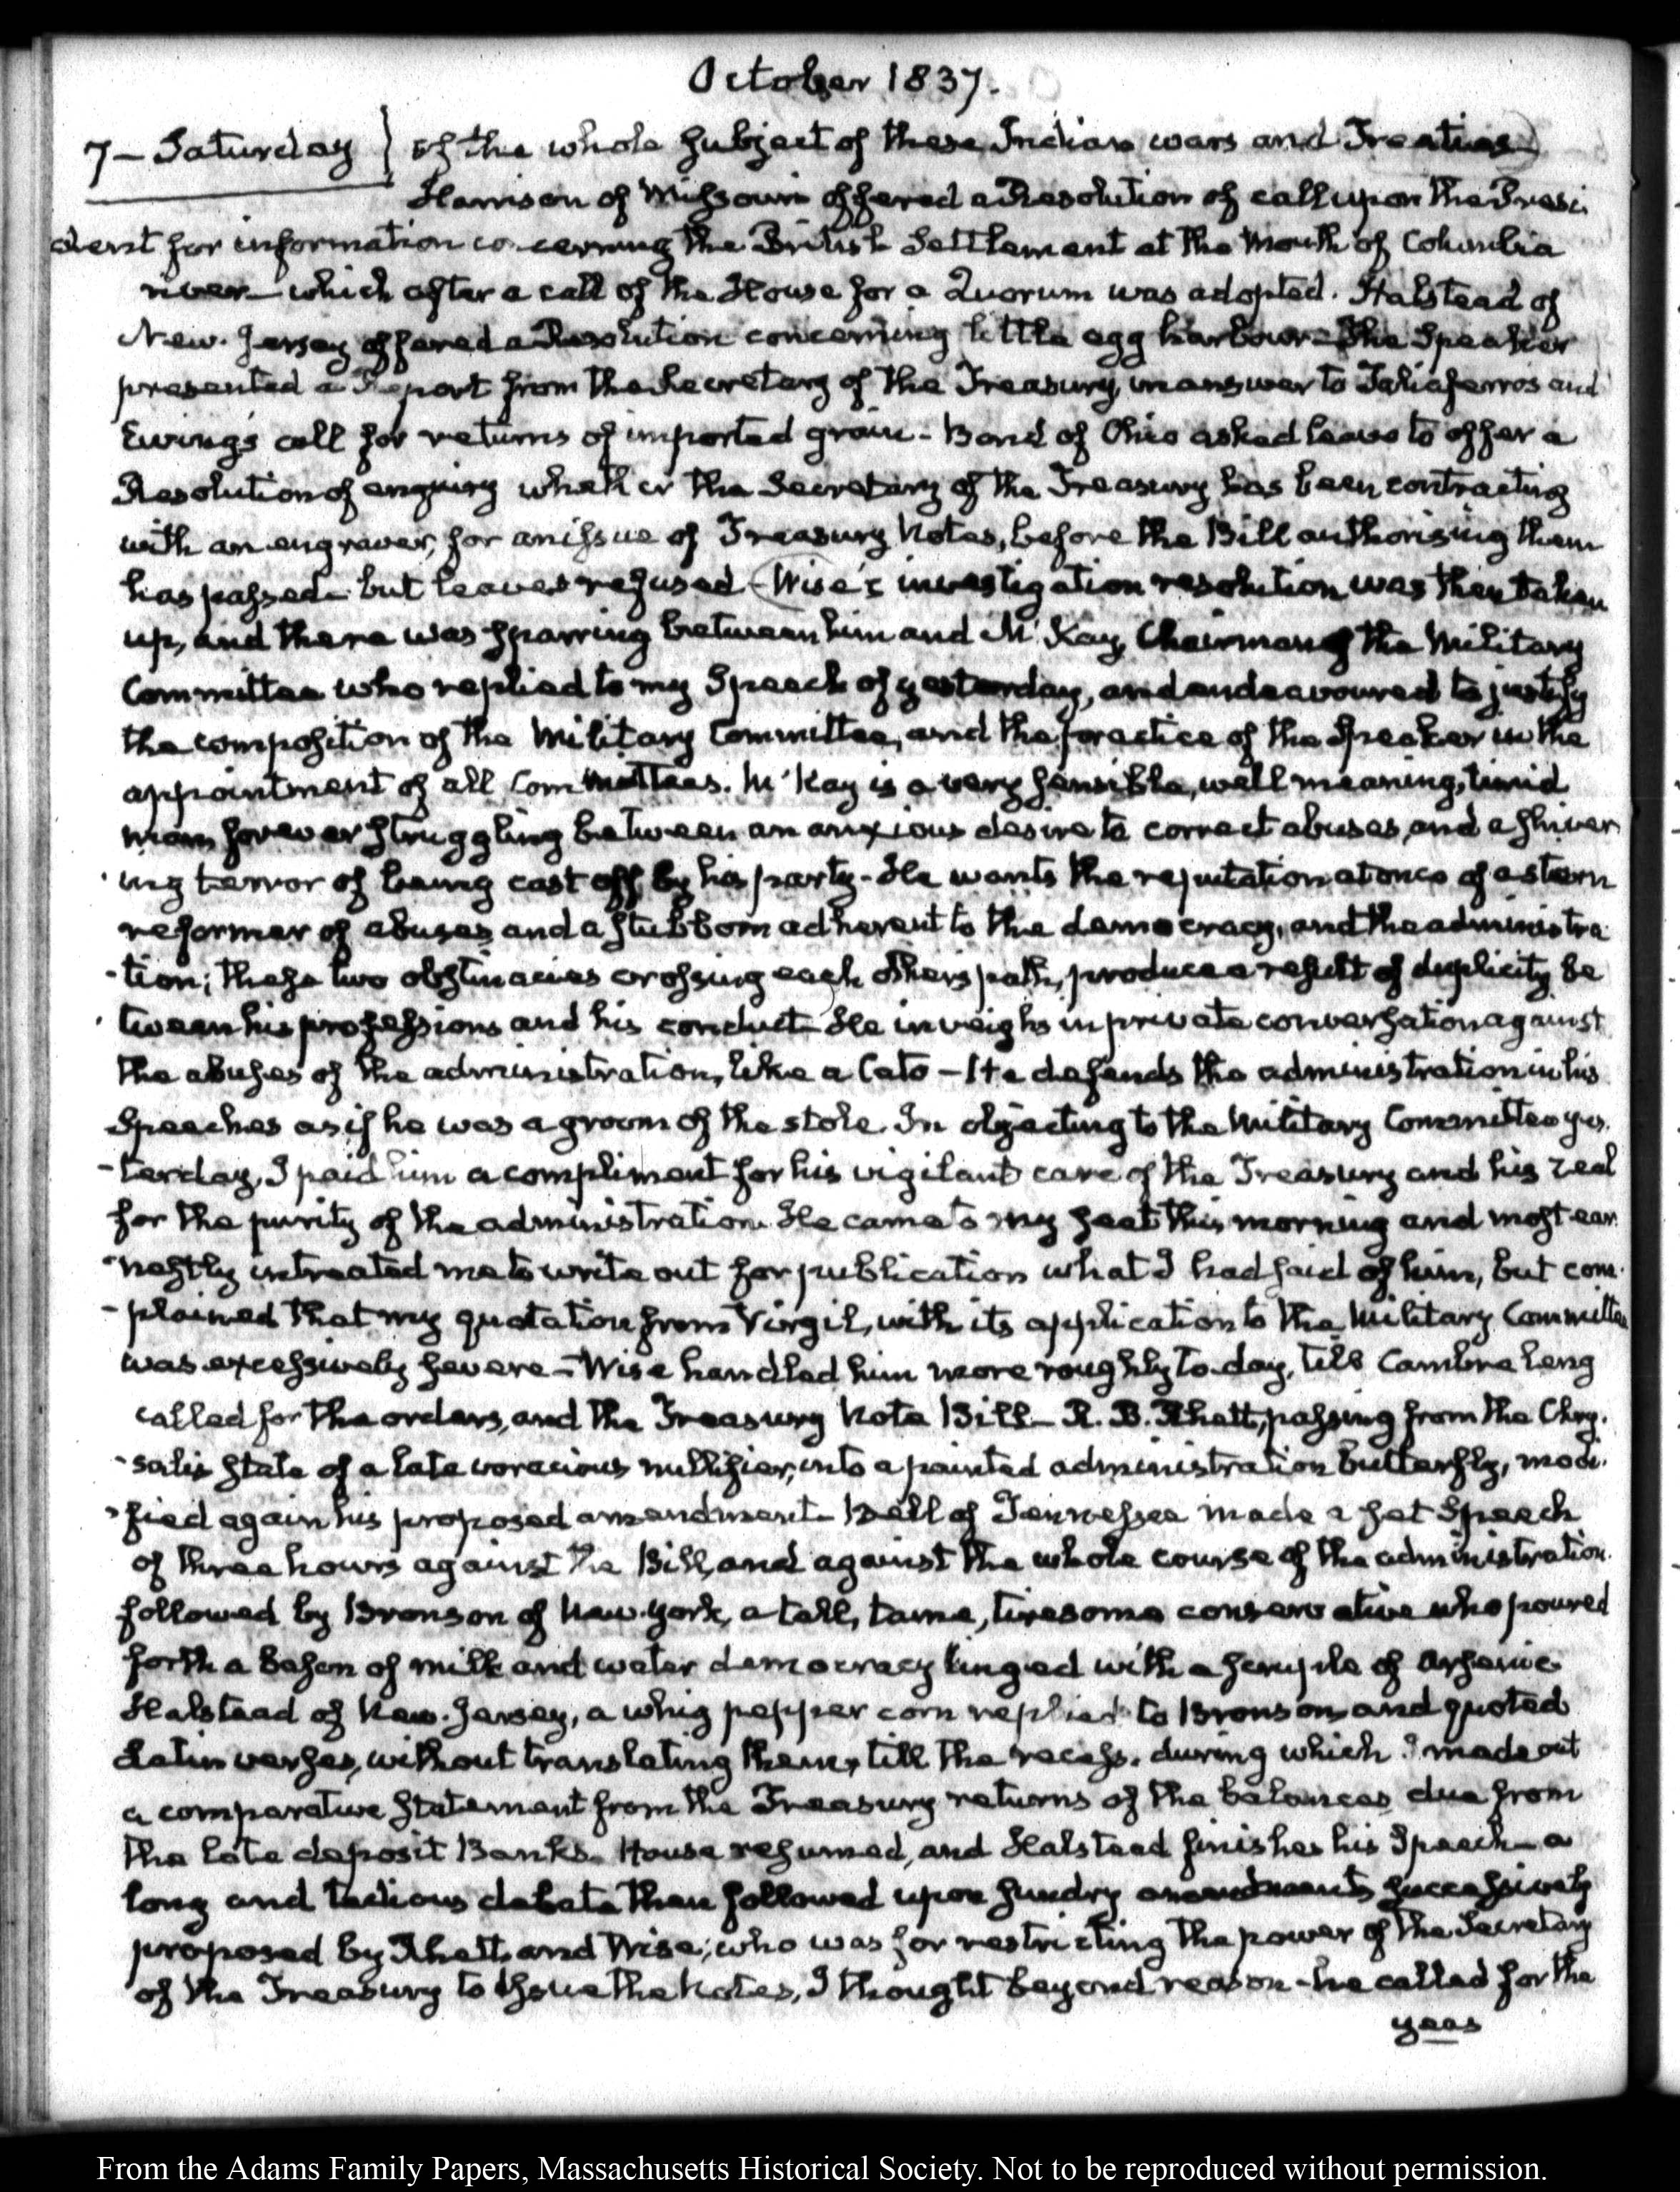 October 1837.
7 – Saturday } of the whole subject of these Indian wars and Treaties)
Harrison of Missouri offered a Resolution of call upon the Presi
dent for information concerning the British Settlement at the Mouth of Columbia
river – which after a call of the House for a Quorum was adopted. Halstead of
New-Jersey offered a Resolution concerning little egg harbour – The Speaker
presented a Report from the Secretary of the Treasury, in answer to Taliaferro's and
Ewing's call for returns of imported grain – Bond of Ohio asked leave to offer a
Resolution of enquiry whether the Secretary of the Treasury has been contracting
with an engraver, for an issue of Treasury Notes, before the Bill authorising them
has passed – but leave was refused (Wise's investigation resolution was then taken
up, and there was sparring between him and M'Kay, Chairman of the Military
Committee who replied to my Speech of yesterday, and endeavoured to justify
the composition of the Military Committee, and the practice of the Speaker in the
appointment of all Committees. M'Kay is a very sensible, well meaning, timid
man, forever struggling between an anxious desire to correct abuses, and a shiver
ing terror of being cast off by his party – He wants the reputation at once of a stern
reformer of abuses and a stubborn adherent to the democracy, and the administra
-tion; these two obstinacies crossing each others path, produce a result of duplicity be
tween his professions and his conduct – He inveighs in private conversation against
the abuses of the administration, like a Cato – He defends the administration in his
Speeches as if he was a groom of the stole. In objecting to the Military Committee yes.
-terday, I paid him a compliment for his vigilant care of the Treasury and his zeal
for the purity of the administration. He came to my seat this morning and most ear
-nestly intreated me to write out for publication what I had said of him, but com.
-plained that my quotation from Virgil, with its application to the Military Committee
was excessively severe – Wise handled him more roughly to-day, till Cambreleng
called for the orders, and the Treasury Note Bill – R. B. Rhett, passing from the Chry.
-salis state of a late voracious nullifier, into a painted administration butterfly, modi.
-fied again his proposed amendment – Bell of Tennessee made a set Speech
of three hours against the Bill, and against the whole course of the administration.
followed by Bronson of New-York, a tall, tame, tiresome conservative who poured
forth a bason of milk and water democracy tinged with a scruple of arsenic
Halstead of New-Jersey, a whig pepper corn replied to Bronson and quoted
Latin verses, without translating them, till the recess. during which I made out
a comparative statement from the Treasury returns of the balances due from
the late deposit Banks. House resumed, and Halstead finishes his Speech – a
long and tedious debate then followed upon sundry amendments successively
proposed by Rhett, and Wise; who was for restricting the power of the Secretary
of the Treasury to issue the Notes, I thought beyond reason – he called for the
yeas
From the Adams Family Papers, Massachusetts Historical Society. Not to be reproduced without permission.